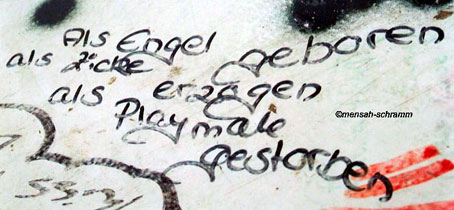 Als Engel geboren
als Zicke erzogen
als Playmate
gestorben
©mensah-schramm